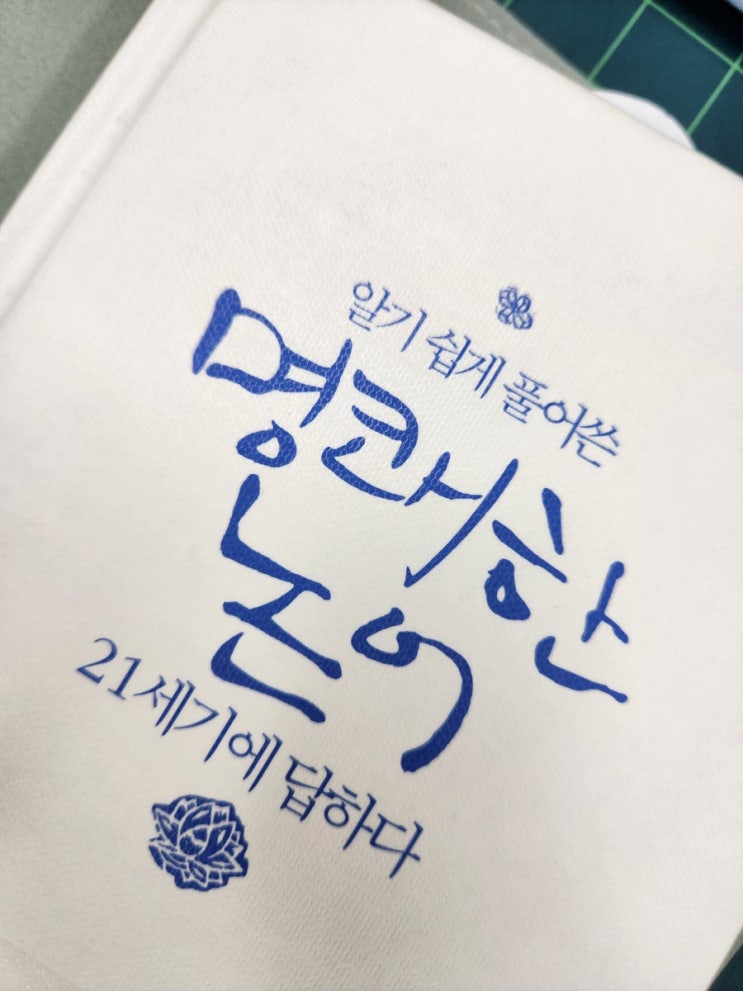 알기 쉽게 풀어쓴
명쾌한
논어
21세기에 답하다